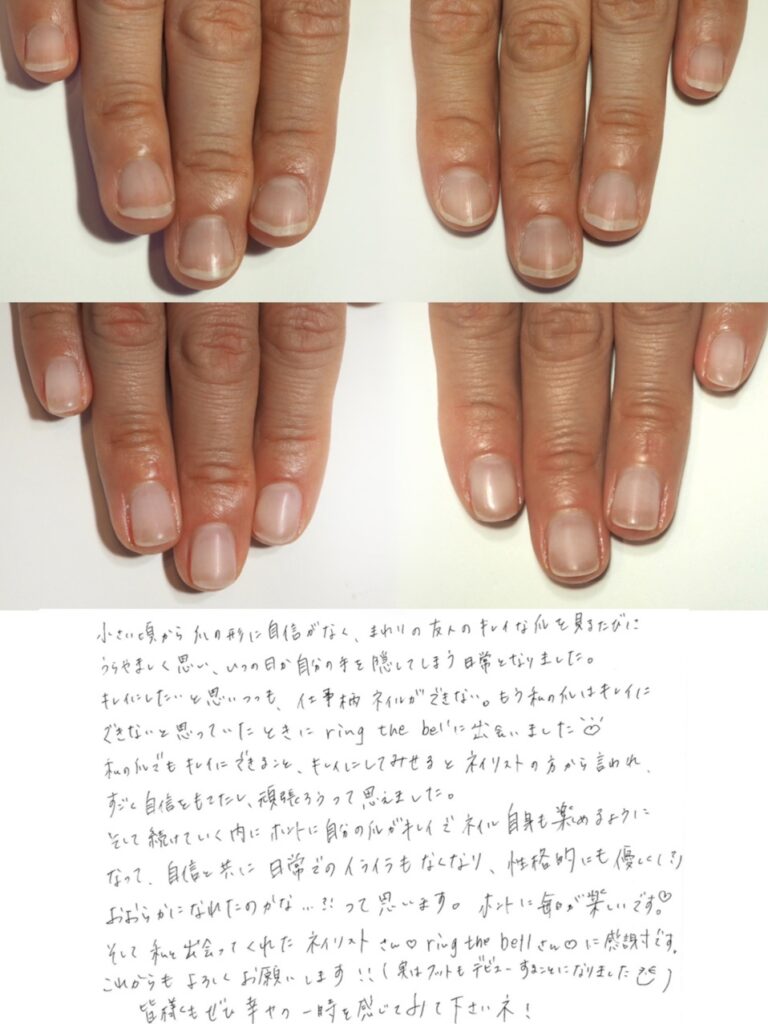 小さい頃から爪の形に自信がなく、まわりの友人のキレイな爪を見るたびに
うらやましく思い、いつの日か自分の手を隠してしまう日常となりました。
キレイにしたいと思いつつも、仕事柄ネイルができない。もう私の爪はキレイに
できないと思っていたときに ring the bellに出会いました
私の爪でもキレイにできること、キレイにしてみせるとネイリストの方から言われ、
すごく自信をもてたし、頑張ろうって思えました。
そして続けていく内にホントに自分の爪がキレイでネイル自身も楽めるように
なって、自信と共に日常でのイライラもなくなり、性格的にも優しく(?)
おおらかになれたのかな…?!って思います。ホントに毎日が楽しいです。♡
そして私と出会ってくれたネイリストさん♡ring the bellさん♡に感謝です。
これからもよろしくお願いします!!(実はフットもデビューすることになりました)
皆様もぜひ幸せの一時を感じてみて下さいネ!